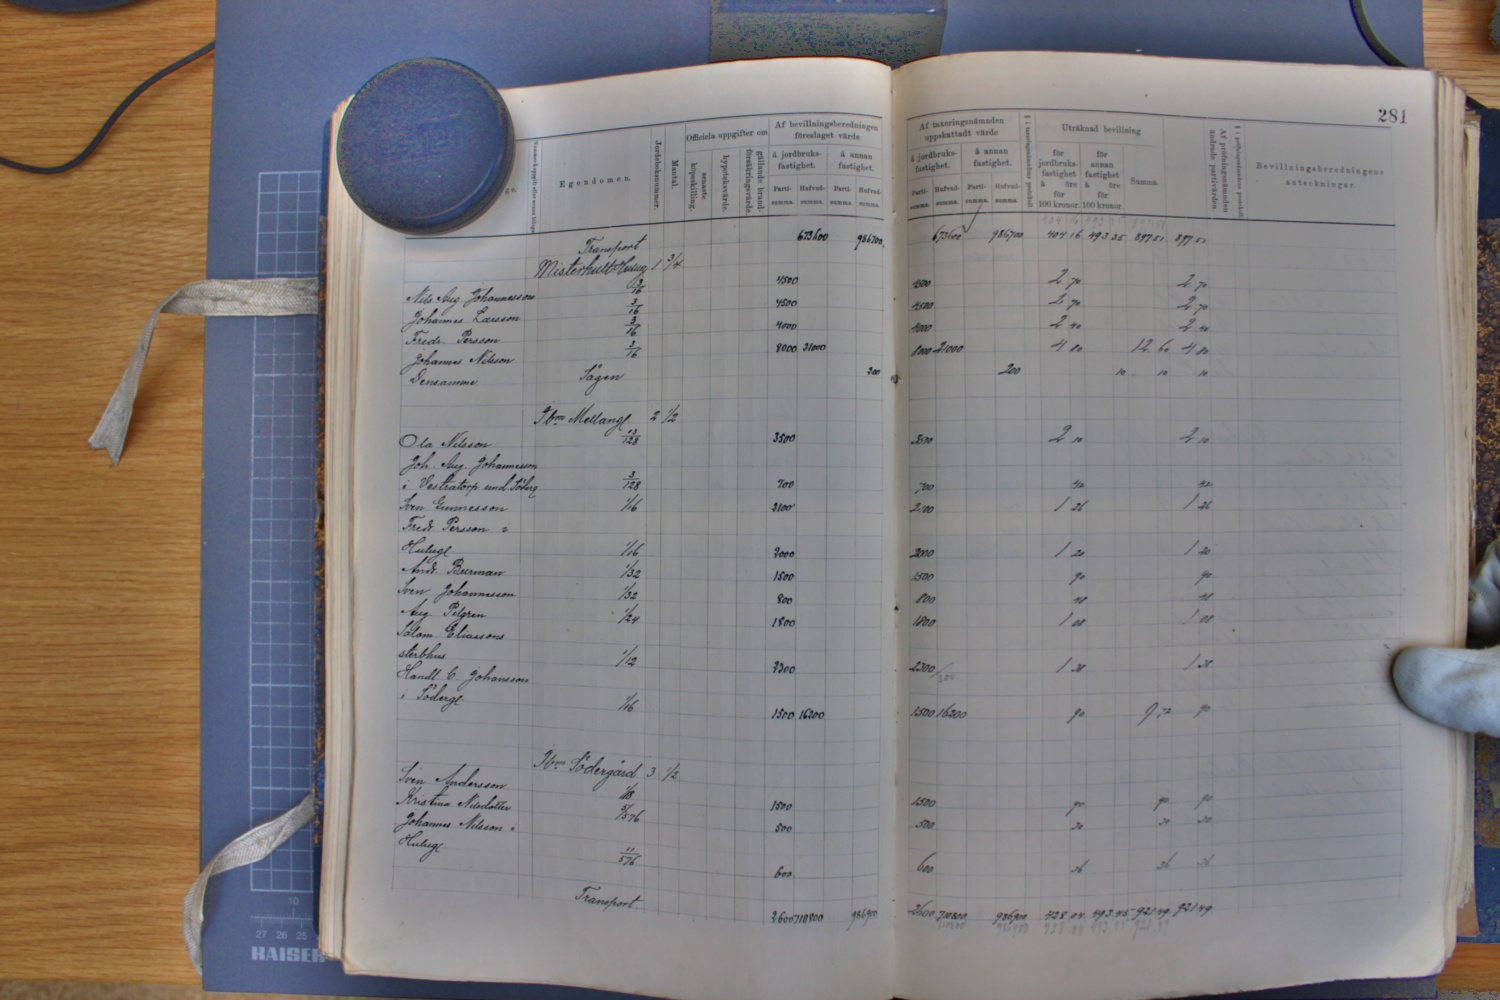 281
Egendomen.
Jordeboksnummer.
Mantal.
Officiela uppgifter om
senaste köpeskilling.
hypoteksvärde.
gällande brandförsäkringsvärde.
Af bevillningsberedningen föreslaget värde
å jordbruksfastighet.
å annan fastighet.
Partisumma.
Hufvudsumma.
Partisumma.
Hufvudsumma.
Af taxeringsnämnden uppskattadt värde
å jordbruksfastighet.
å annan fastighet.
Partisumma.
Hufvudsumma.
Partisumma.
Hufvudsumma.
Uträknad bevillning
för jordbruksfastighet å öre för 100 kronor.
för annan fastighet å öre för 100 kronor.
Summa.
Af pröfningsnämnden ändrade partivärden.
Bevillningsberedningens anteckningar.
Transport 673600 986700 673600 986700 404 16 493 35 897 51 897 51
Misterhult 1 3/4
Nils Aug. Johannesson 3/16 4500 4500 2 70 2 70
Johannes Larsson 3/16 4500 4500 2 70 2 70
Fredr. Persson 3/16 4000 4000 2 40 2 40
Johannes Nilsson 3/16 8000 21000 8000 21000 4 80 12 60 4 80
Densamme Sågen 200 200 10 10 10
Ibm Mellangd 2 1/2
Ola Nilsson 13/128 3500 3500 2 10 2 10
Joh. Aug. Johannesson
i Vestratorp und Söderg 3/128 700 700 42 42
Sven Gunnesson 1/16 2100 2100 1 26 1 26
Fredr Persson i
Hulugd 1/16 2000 2000 1 20 1 20
Andr. Burman 1/32 1500 1500 90 90
Sven Johannesson 1/32 800 800 48 48
Aug. Pilgren 1/24 1800 1800 1 08 1 08
Salom. Eliassons
sterbhus 1/12 2300 2300 1 38 1 38
Handl. C. Johansson
i Södergd 1/16 1500 16200 1500 16200 90 9 72 90
Ibm Södergård 3 1/2
Sven Andersson 1/18 1500 1500 90 90 90
Kristina Nilsdotter 5/576 500 500 30 30 30
Johannes Nilsson i
Hulugd 11/576 600 600 36 36 36
Transport 2600 710800 986900 2600 710800 986900 428 04 493 45 921 49 921 49
10
27 26 25
KAISER